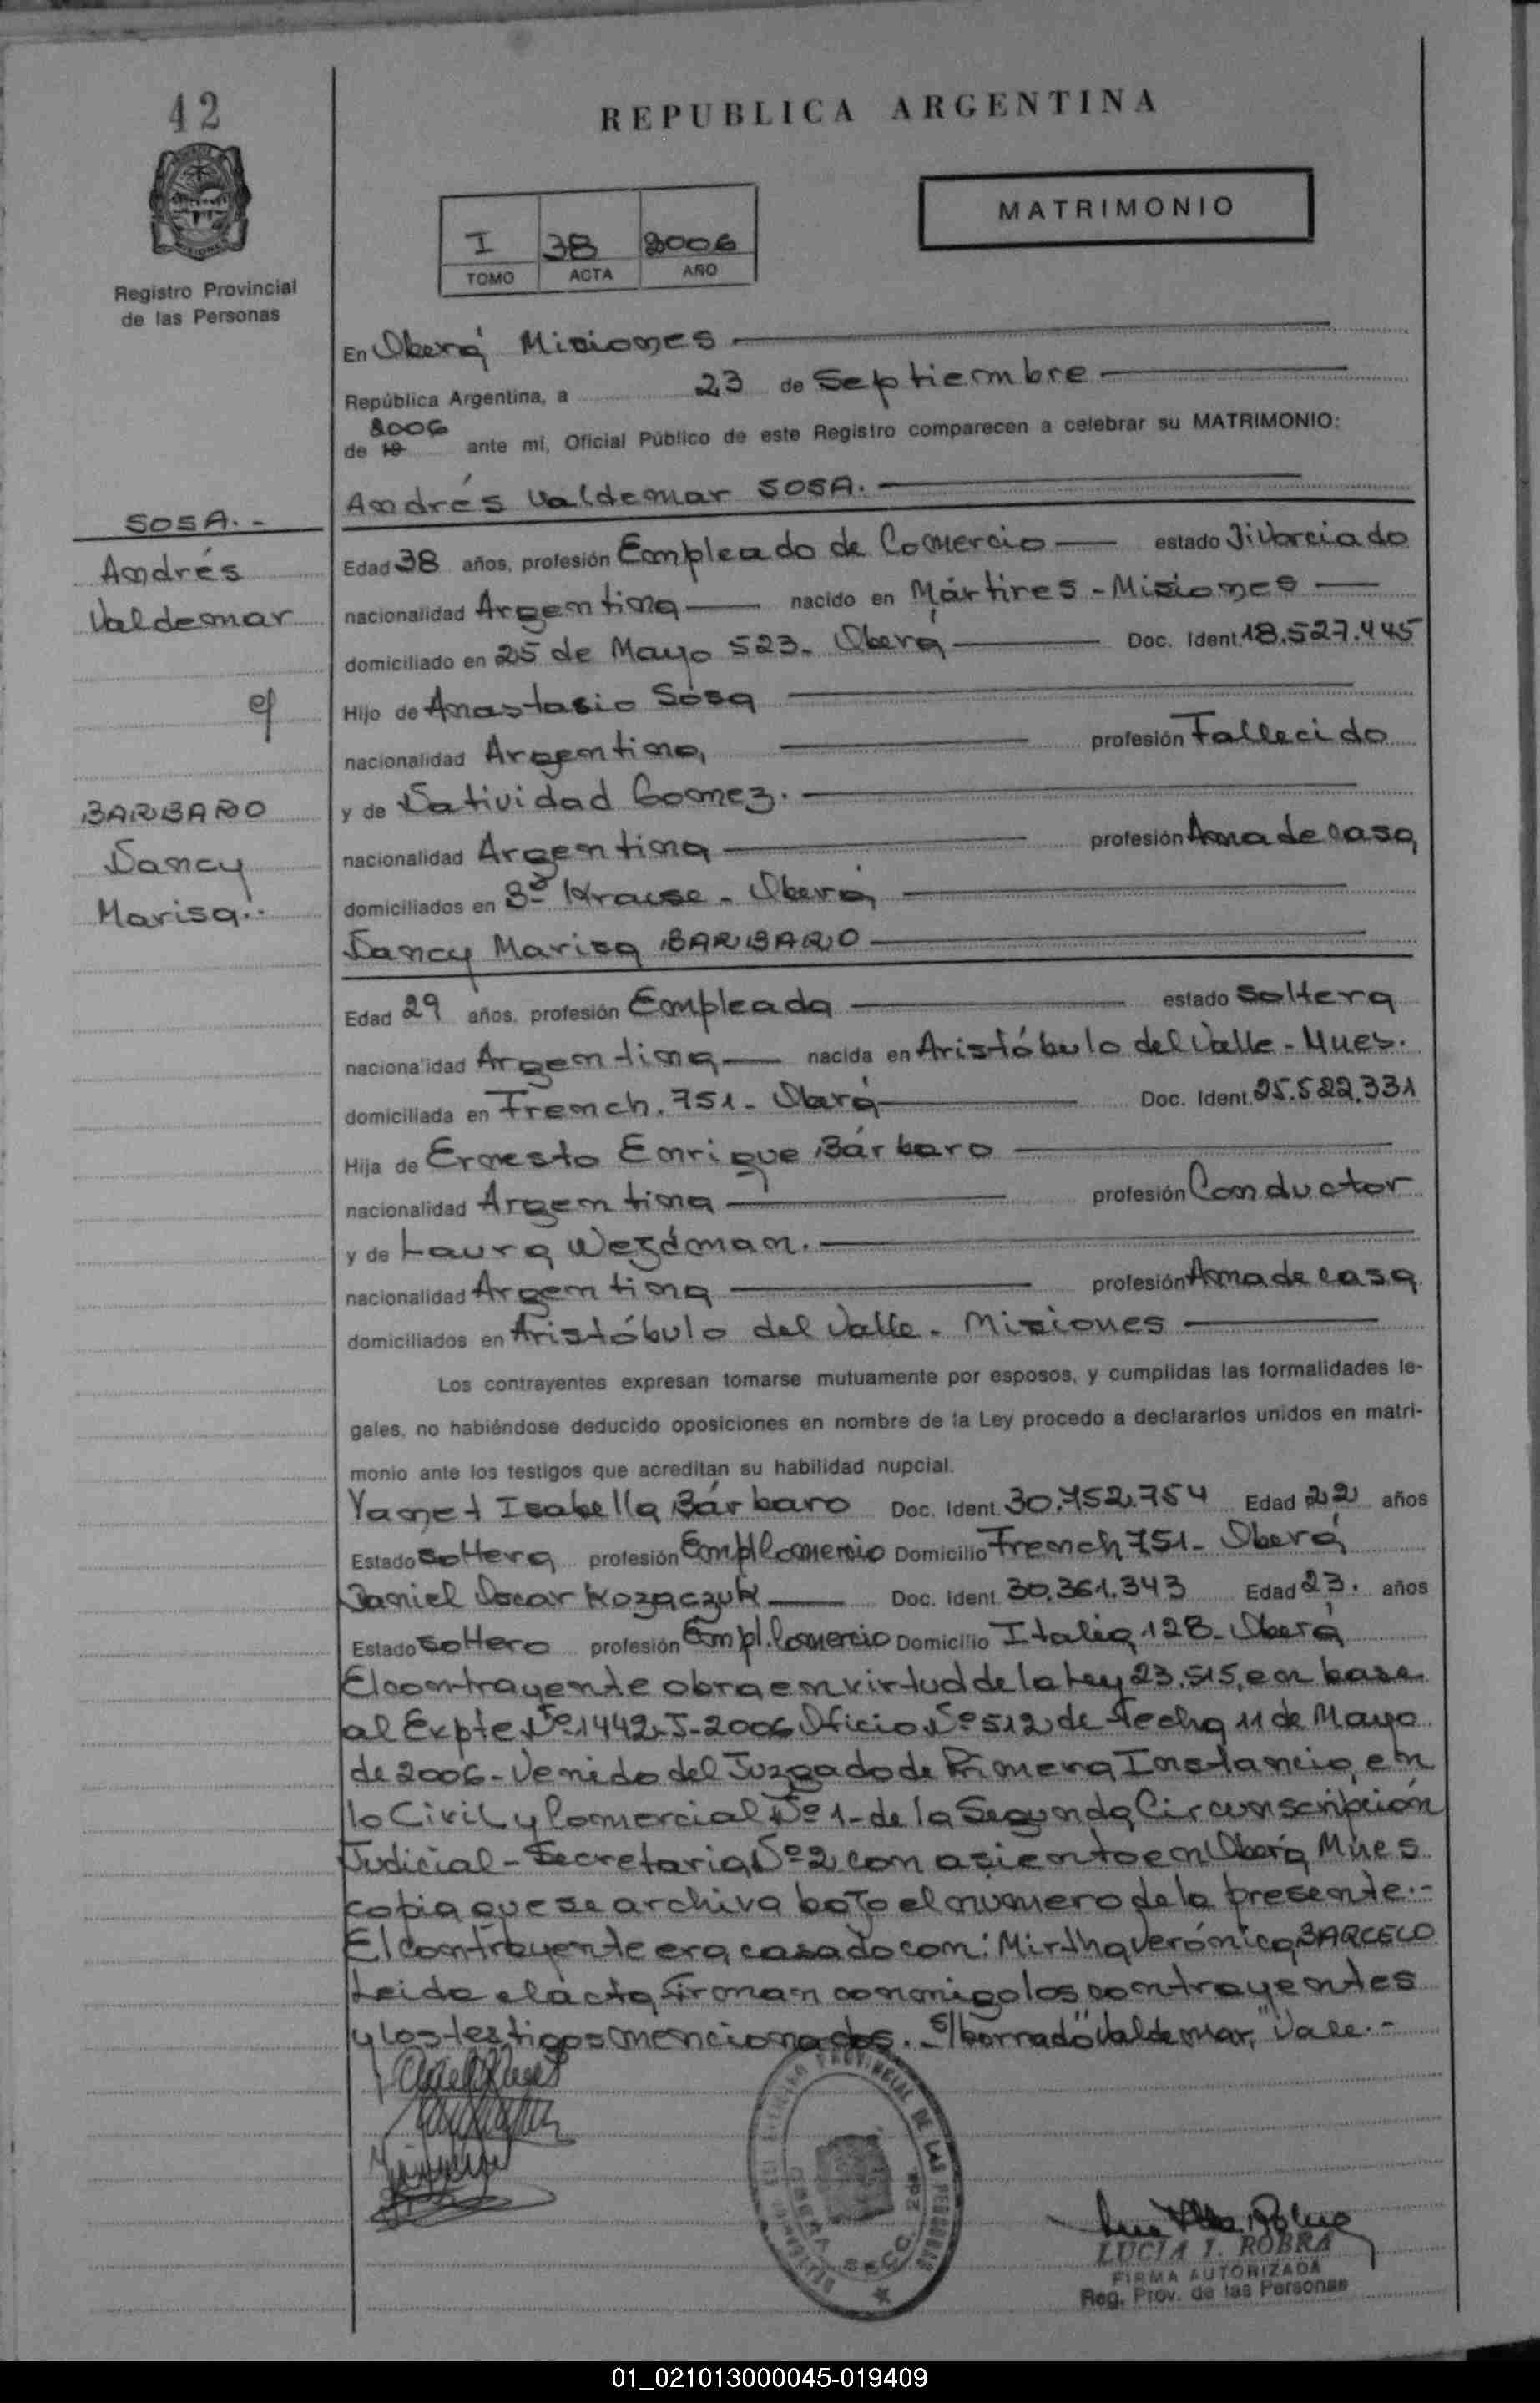 42
REPUBLICA ARGENTINA
MATRIMONIO
I 38 2006
TOMO ACTA AÑO
Registro Provincial
de las Personas
En Oberá Misiones
República Argentina, a 23 de Septiembre
2006
de 19 ante mi, Oficial Público de este Registro comparecen a celebrar su MATRIMONIO:
Andrés Valdemar SOSA.
SOSA.-
Andrés
Valdemar
c/
BARBARO
Nancy
Marisa.
Edad 38 años, profesión Empleado de Comercio estado Divorciado
nacionalidad Argentina nacido en Mártires - Misiones
domiciliado en 25 de Mayo 523. Oberá Doc. Ident. 18.527.445
Hijo de Anastasio Sosa
nacionalidad Argentina profesión Fallecido
y de Natividad Gomez.
nacionalidad Argentina profesión Ama de casa
domiciliados en Bº Krause - Oberá
Nancy Marisa BARBARO
Edad 29 años, profesión Empleada estado soltera
nacionalidad Argentina nacida en Aristóbulo del Valle - Mnes.
domiciliada en French. 751. Oberá Doc. Ident. 25.522.331
Hija de Ernesto Enrique Bárbaro
nacionalidad Argentina profesión Conductor
y de Laura
nacionalidad Argentina profesión Ama de casa
domiciliados en Aristóbulo del Valle - Misiones
Los contrayentes expresan tomarse mutuamente por esposos, y cumplidas las formalidades le-
gales, no habiéndose deducido oposiciones en nombre de la Ley procedo a declararlos unidos en matri-
monio ante los testigos que acreditan su habilidad nupcial.
Yanet Isabella Bárbaro Doc. Ident. 30.752.754 Edad 22 años
Estado soltera profesión Empl Comercio Domicilio French 751 - Oberá
Daniel Oscar Kozaczuk Doc. Ident. 30.361.343 Edad 23. años
Estado soltero profesión Empl. Comercio Domicilio Italia 128 - Oberá
El contrayente obra en virtud de la Ley 23.515, en base
al Expte Nº 1442-J-2006 Oficio Nº 512 de fecha 11 de Mayo
de 2006 - Venido del Juzgado de Primera Instancia en
lo Civil y Comercial Nº 1 - de la Segunda Circunscripción
Judicial - Secretaria Nº 2 con asiento en Oberá Mnes
copia que se archiva bajo el numero de la presente.-
El contrayente era casado con: Mirtha Verónica BARCELO
Leida el acta, firman conmigo los contrayentes
y los testigos mencionados. s/borrado "Valdemar," Vale.-
LUCIA I. ROBRA
FIRMA AUTORIZADA
Reg. Prov. de las Personas
01_021013000045-019409